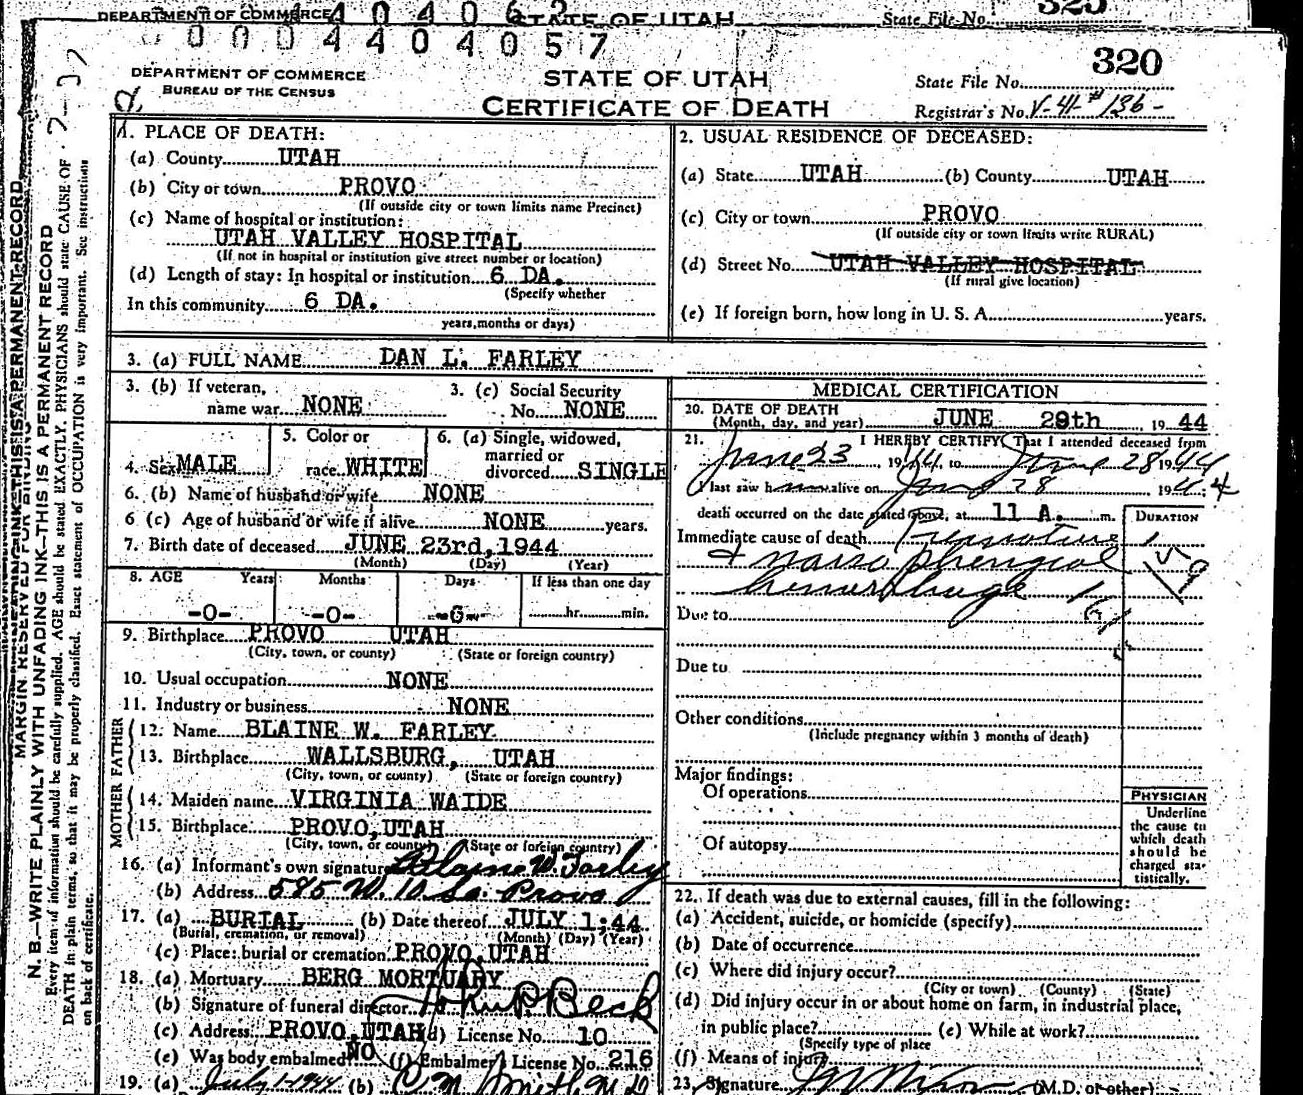 DEPARTMENT OF COMMERCE STATE OF UTAH State File No. 325
0 0 0 4 4 0 4 0 5 7
320
DEPARTMENT OF COMMERCE
BUREAU OF THE CENSUS
STATE OF UTAH
CERTIFICATE OF DEATH
State File No.
Registrar's No. V-41-#136-
1. PLACE OF DEATH:
(a) County UTAH
(b) City or town PROVO
(If outside city or town limits name Precinct)
(c) Name of hospital or institution:
UTAH VALLEY HOSPITAL
(If not in hospital or institution give street number or location)
(d) Length of stay: In hospital or institution 6 DA.
(Specify whether
In this community 6 DA.
years, months or days)
2. USUAL RESIDENCE OF DECEASED:
(a) State UTAH (b) County UTAH
(c) City or town PROVO
(If outside city or town limits write RURAL)
(d) Street No. UTAH VALLEY HOSPITAL
(If rural give location)
(e) If foreign born, how long in U. S. A. years.
3. (a) FULL NAME DAN L. FARLEY
3. (b) If veteran, name war NONE
3. (c) Social Security No. NONE
4. Sex MALE
5. Color or race WHITE
6. (a) Single, widowed, married or divorced SINGLE
6. (b) Name of husband or wife NONE
6 (c) Age of husband or wife if alive NONE years.
7. Birth date of deceased JUNE 23rd, 1944
(Month) (Day) (Year)
8. AGE Years Months Days If less than one day
-0- -0- -6- hr. min.
9. Birthplace PROVO UTAH
(City, town, or county) (State or foreign country)
10. Usual occupation NONE
11. Industry or business NONE
FATHER
12. Name BLAINE W. FARLEY
13. Birthplace WALLSBURG, UTAH
(City, town, or county) (State or foreign country)
MOTHER
14. Maiden name VIRGINIA WAIDE
15. Birthplace PROVO, UTAH
(City, town, or county) (State or foreign country)
16. (a) Informant's own signature Blaine W. Farley
(b) Address 585 W. 10 So. Provo
17. (a) BURIAL (b) Date thereof JULY 1, 44
(Burial, cremation, or removal) (Month) (Day) (Year)
(c) Place: burial or cremation PROVO, UTAH
18. (a) Mortuary BERG MORTUARY
(b) Signature of funeral director Beck
(c) Address PROVO, UTAH (d) License No. 10
(e) Was body embalmed NO (f) Embalmer License No. 216
19. (a) July 1-1944 (b) C. M. Smith M D
MEDICAL CERTIFICATION
20. DATE OF DEATH
(Month, day, and year) JUNE 29th 19 44
21. I HEREBY CERTIFY That I attended deceased from
June 23, 1944 to June 28 1944
I last saw him alive on June 28 1944
death occurred on the date stated above, at 11 A. m.
DURATION
Immediate cause of death Premature
+ naso phrengial
hemorrhage
Due to
Due to
Other conditions
(Include pregnancy within 3 months of death)
Major findings:
Of operations
Of autopsy
PHYSICIAN
Underline
the cause to
which death
should be
charged sta-
tistically.
22. If death was due to external causes, fill in the following:
(a) Accident, suicide, or homicide (specify)
(b) Date of occurrence
(c) Where did injury occur?
(City or town) (County) (State)
(d) Did injury occur in or about home on farm, in industrial place,
in public place? (e) While at work?
(Specify type of place
(f) Means of injury
23. Signature (M.D. or other)
MARGIN RESERVED FOR BINDING
N. B.—WRITE PLAINLY WITH UNFADING INK—THIS IS A PERMANENT RECORD
Every item of information should be carefully supplied. AGE should be stated EXACTLY. PHYSICIANS should state CAUSE OF
DEATH in plain terms, so that it may be properly classified. Exact statement of OCCUPATION is very important. See instruction
on back of certificate.